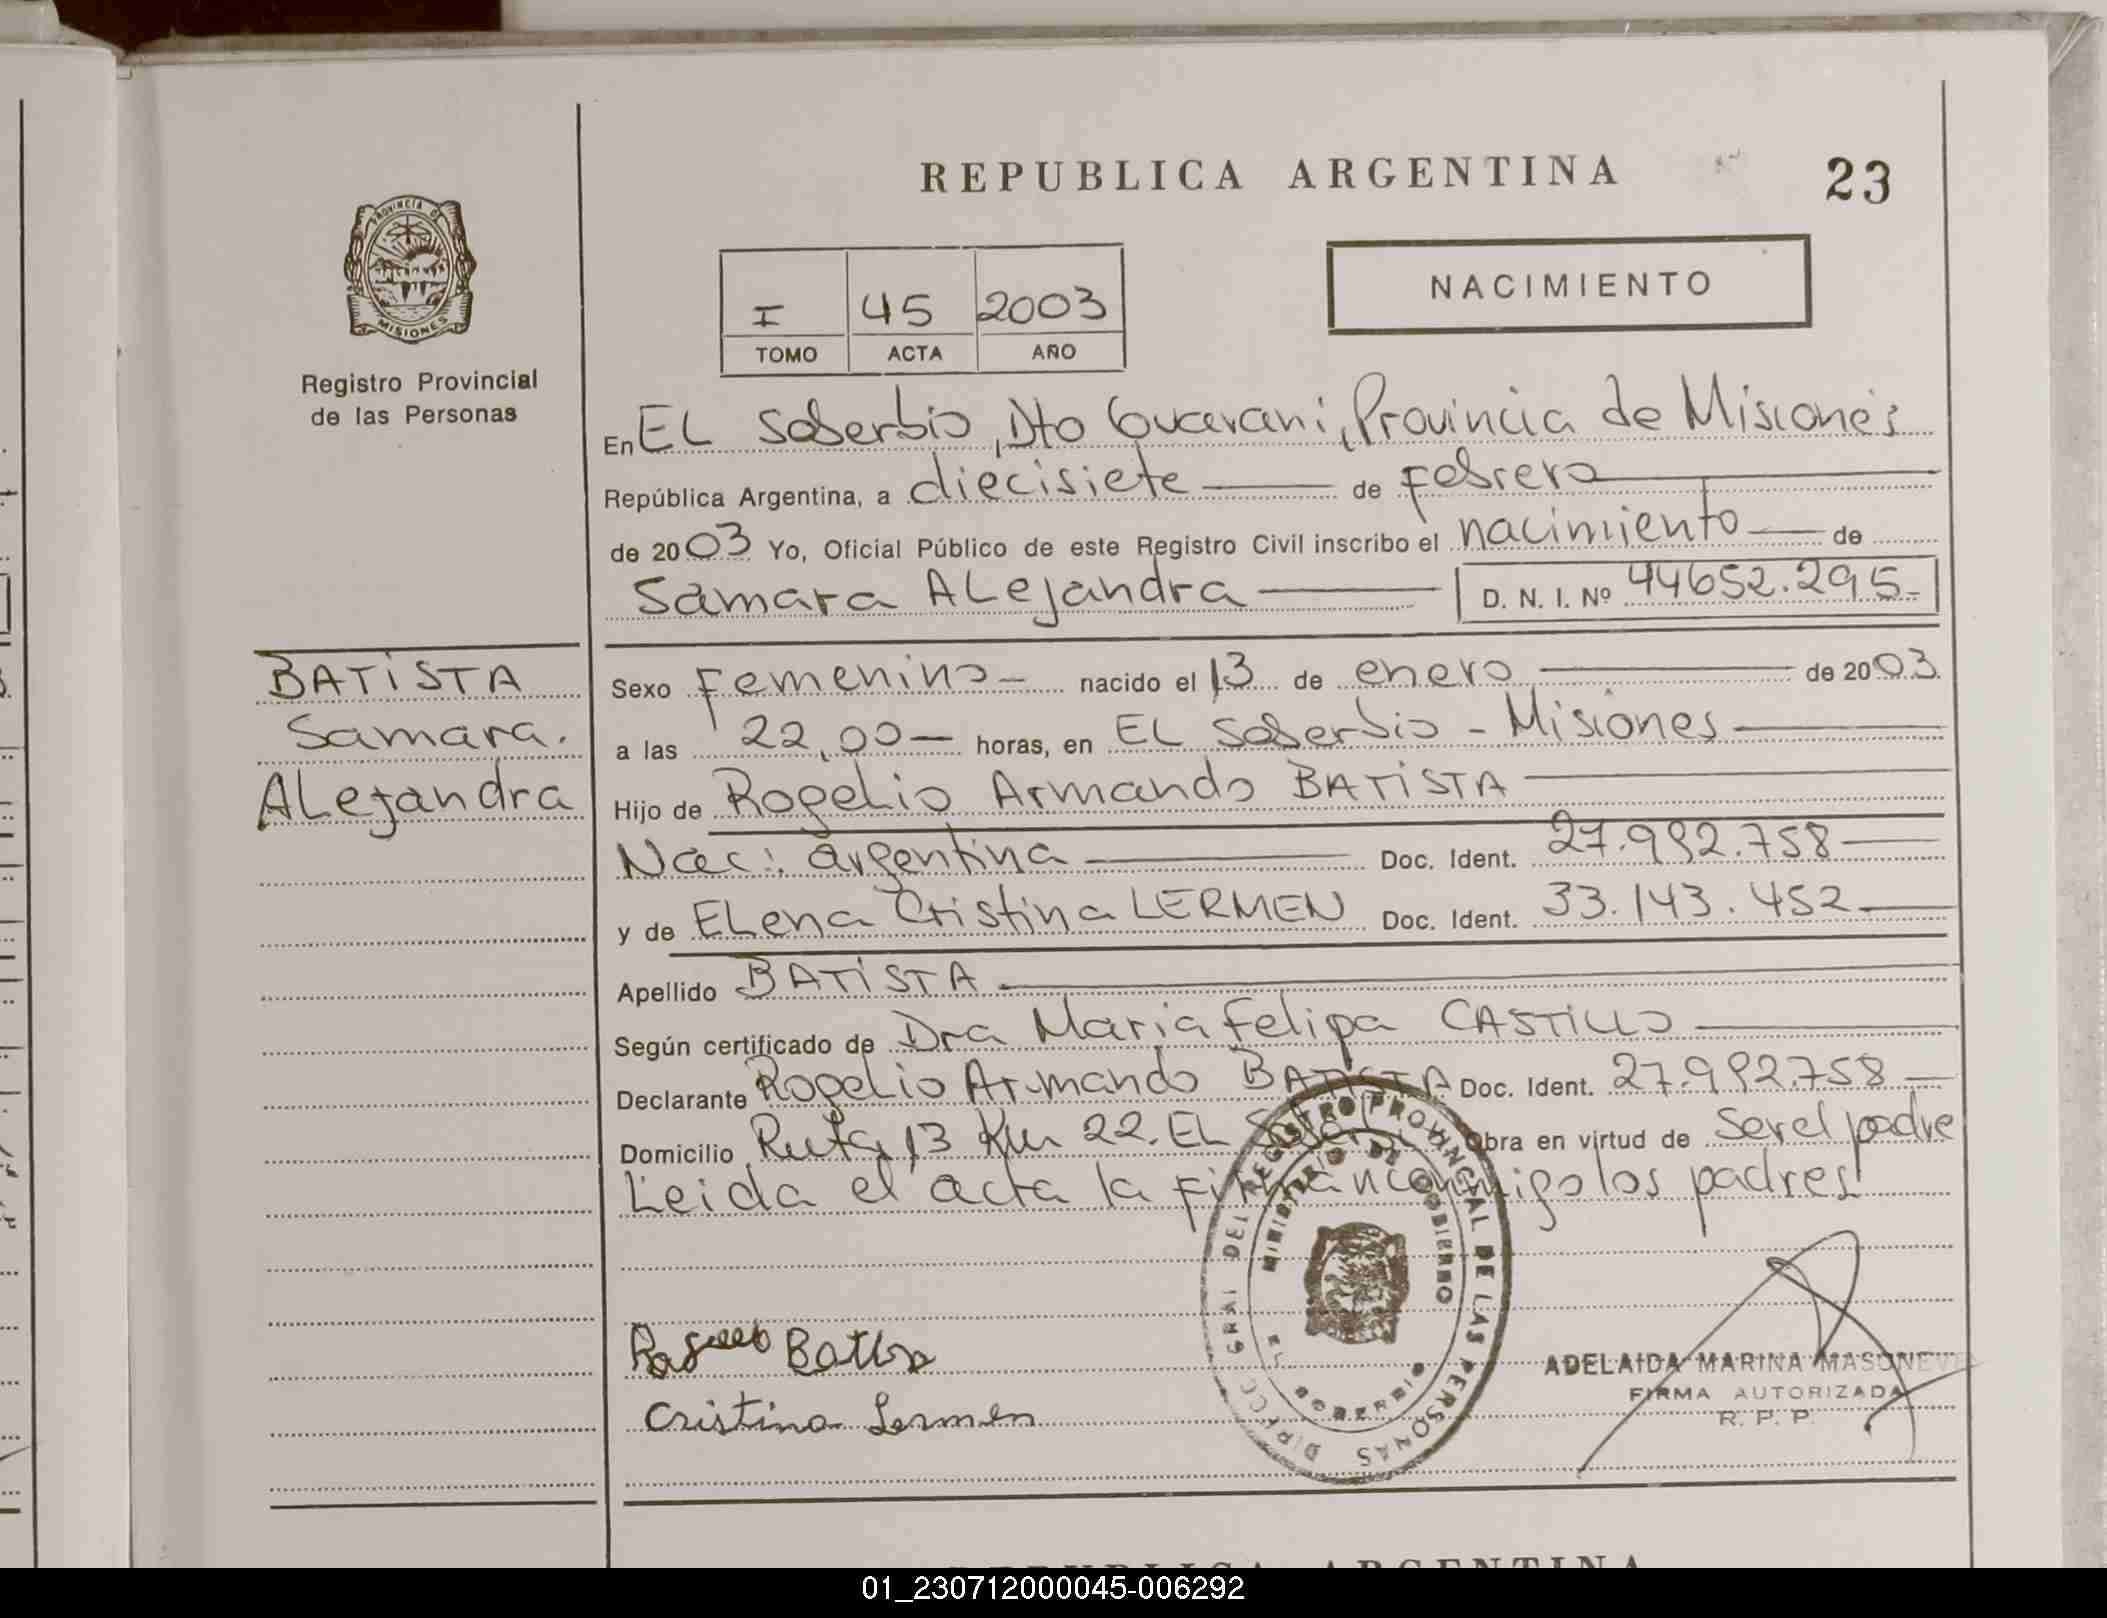 REPUBLICA ARGENTINA
23
PROVINCIA DE
MISIONES
Registro Provincial
de las Personas
I 45 2003
TOMO ACTA AÑO
NACIMIENTO
En EL Soberbio, Dto Guarani, Provincia de Misiones
República Argentina, a diecisiete de Febrero
de 2003 Yo, Oficial Público de este Registro Civil inscribo el nacimiento de
Samara ALejandra D. N. I. Nº 44652.295-
BATiSTA
Samara.
ALejandra
Sexo Femenino - nacido el 13 de enero de 2003.
a las 22,00 - horas, en EL Soberbio - Misiones
Hijo de RogeLio Armando BATiSTA
Nac: argentina Doc. Ident. 27.992.758
y de ELena Cristina LERMEN Doc. Ident. 33.143.452
Apellido BATiSTA
Según certificado de Dra Maria Felipa CASTiLLO
Declarante RogeLio Armando BATiSTA Doc. Ident. 27.992.758
Domicilio Ruta 13 Km 22. EL Obra en virtud de Ser el padre
Leida el acta la Firman conmigo los padres
DIRECC GRAL DEL REGISTRO PROVINCIAL DE LAS PERSONAS
MINISTERIO DE GOBIERNO
EL SOBERBIO
Batista
Cristina Lermen
ADELAIDA MARINA
FIRMA AUTORIZADA
R. P. P.
REPUBLICA ARGENTINA
01_230712000045-006292